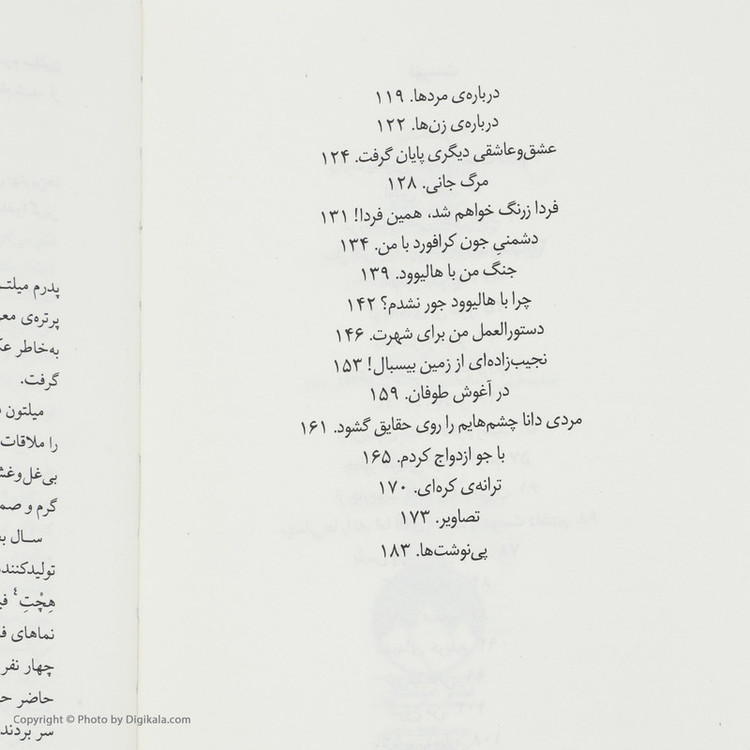 درباره‌ی مردها. ۱۱۹
درباره‌ی زن‌ها. ۱۲۲
عشق‌وعاشقی دیگری پایان گرفت. ۱۲۴
مرگ جانی. ۱۲۸
فردا زرنگ خواهم شد، همین فردا! ۱۳۱
دشمنیِ جون کرافورد با من. ۱۳۴
جنگ من با هالیوود. ۱۳۹
چرا با هالیوود جور نشدم؟ ۱۴۲
دستورالعمل من برای شهرت. ۱۴۶
نجیب‌زاده‌ای از زمین بیسبال! ۱۵۳
در آغوش طوفان. ۱۵۹
مردی دانا چشم‌هایم را روی حقایق گشود. ۱۶۱
با جو ازدواج کردم. ۱۶۵
ترانه‌ی کره‌ای. ۱۷۰
تصاویر. ۱۷۳
پی‌نوشت‌ها. ۱۸۳
پدرم
پرتره‌ی
به‌خاطر
گرفت.
میلتون
را ملاقات
گرم و
سال
هِچْتِ۴
نماهای
چهار نفر
حاضر
سر بردند
Copyright © Photo by Digikala.com